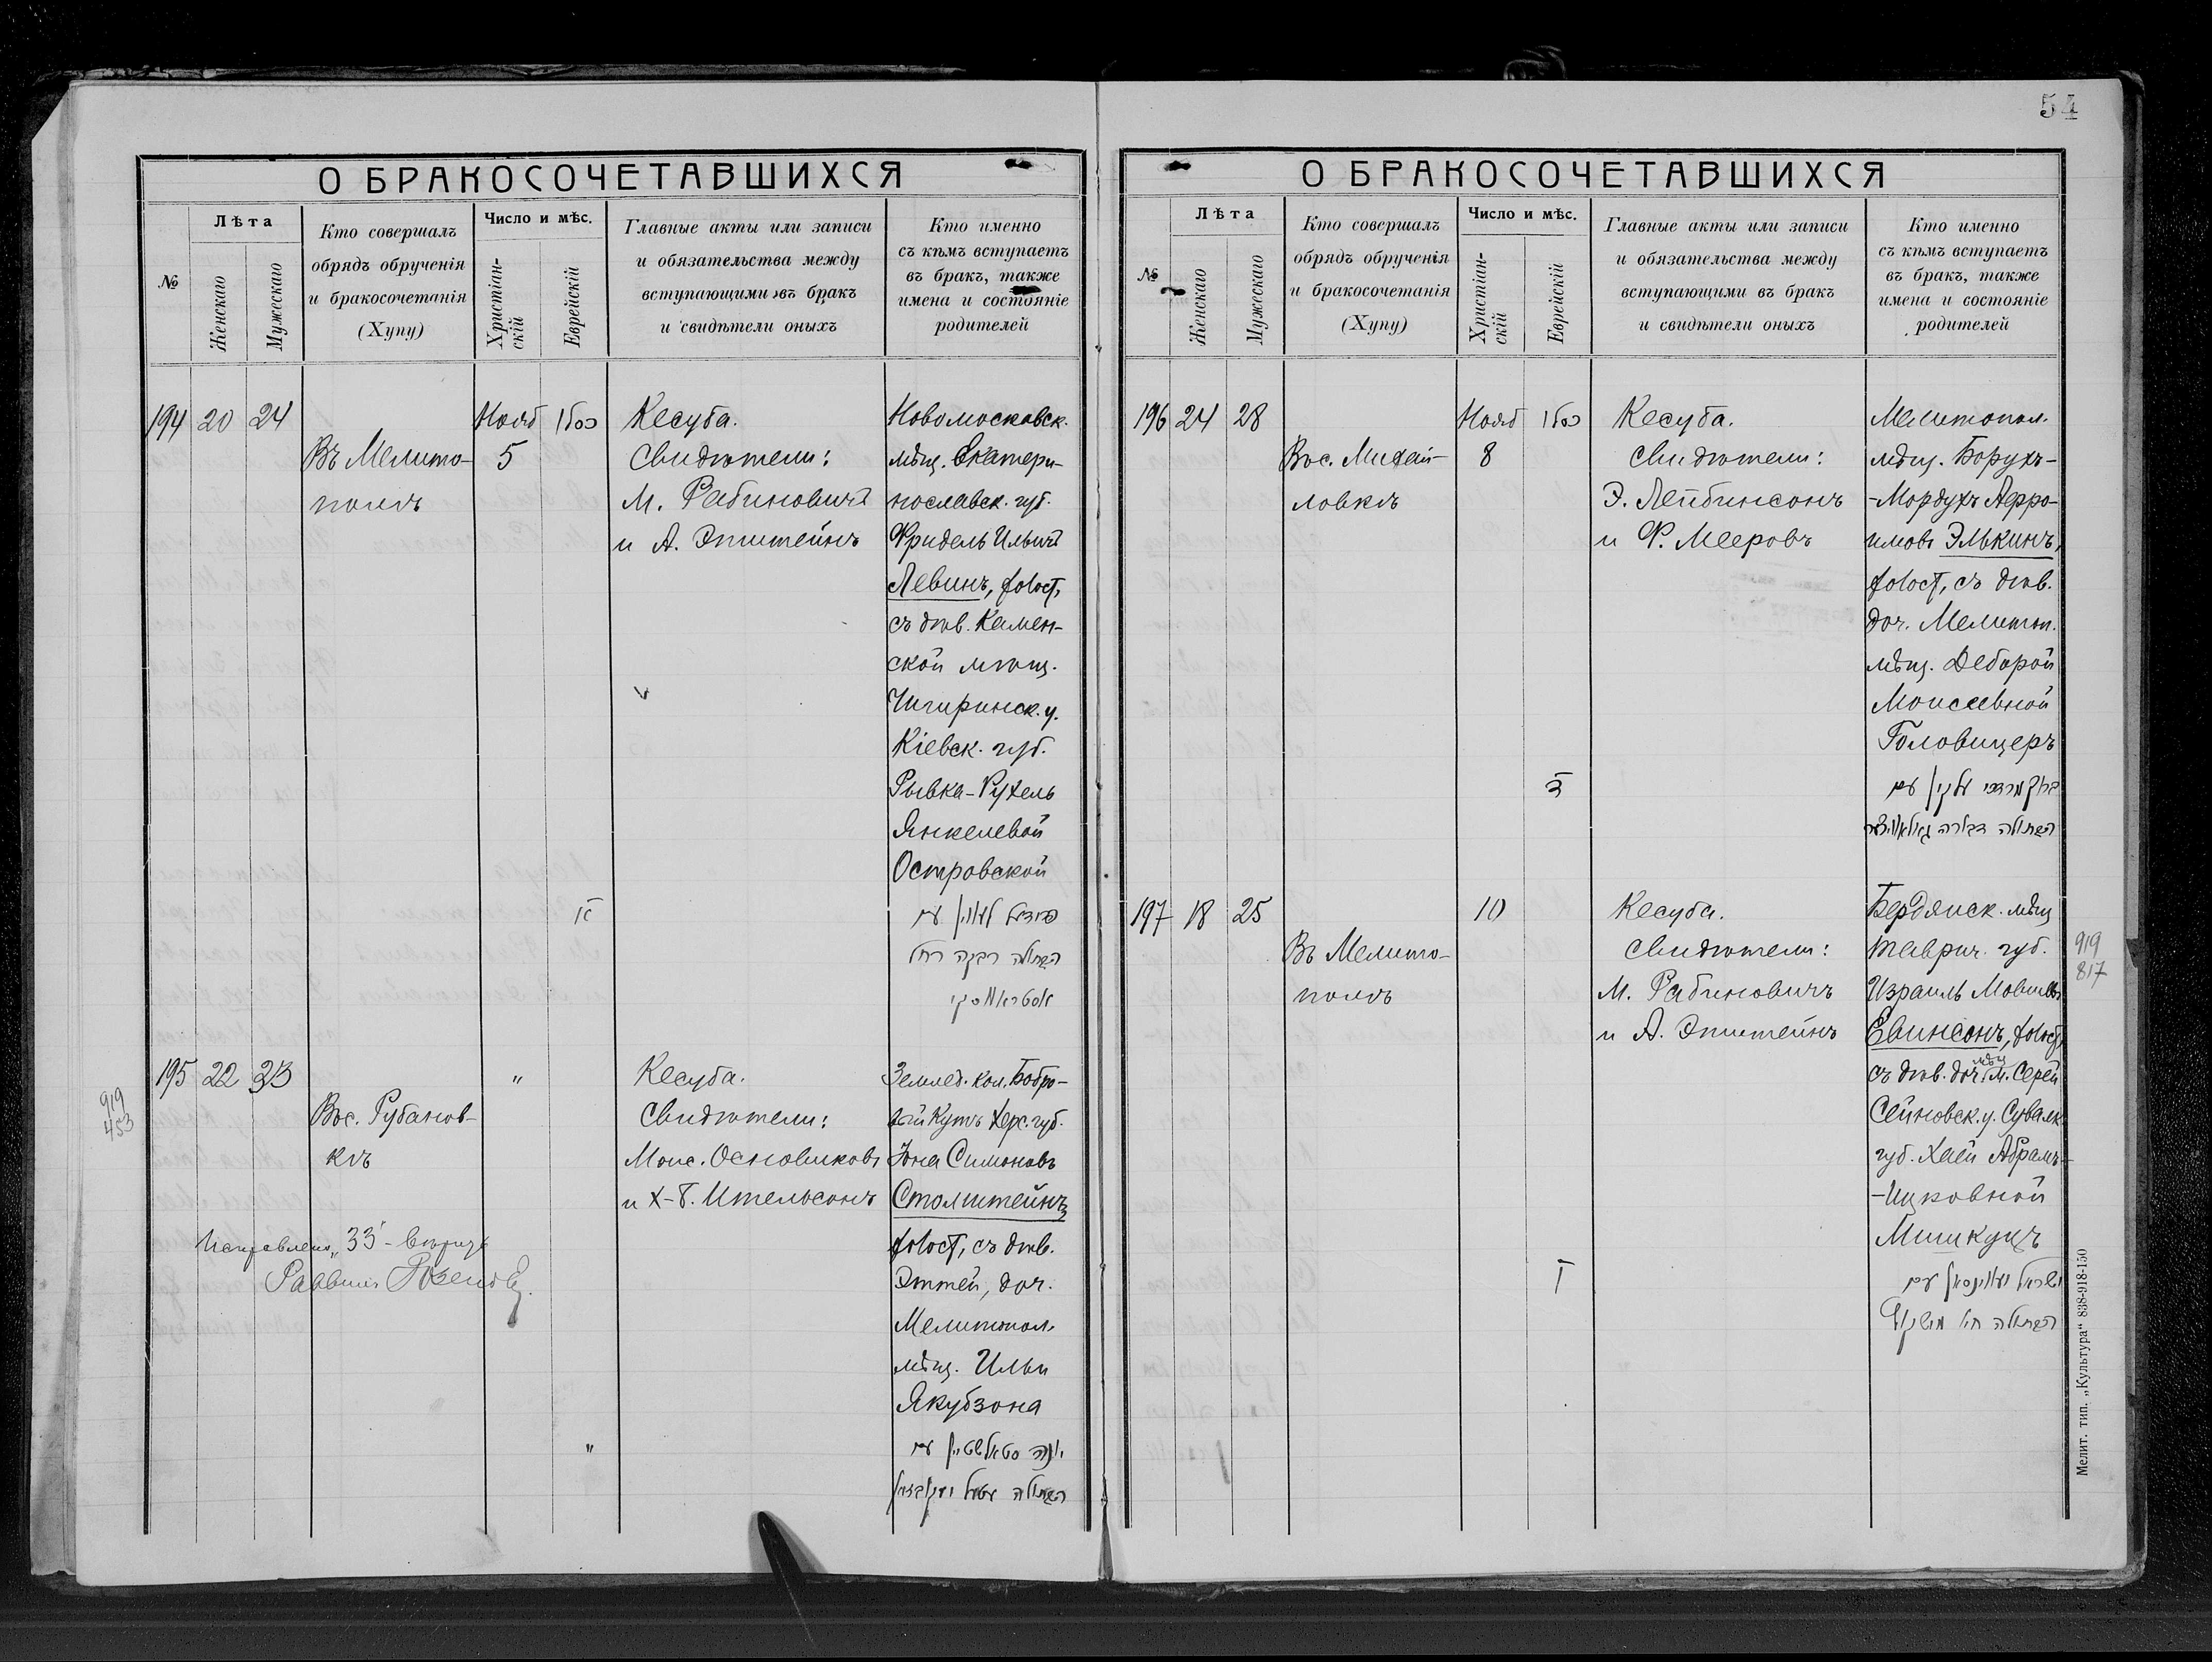 54
О БРАКОСОЧЕТАВШИХСЯ
№
Лѣта
Женскаго
Мужескаго
Кто совершалъ
обрядъ обрученія
и бракосочетанія
(Хупу)
Число и мѣс.
Христіан-
скій
Еврейскій
Главные акты или записи
и обязательства между
вступающими въ бракъ
и свидѣтели оныхъ
Кто именно
съ кѣмъ вступаетъ
въ бракъ, также
имена и состояніе
родителей
194 20 24
Въ Мелито-
полѣ
Нояб
5
כסלו
יא
Кесуба.
Свидѣтели:
М. Рабиновичъ
и А. Эпштейнъ
Новомосковск.
мѣщ. Екатери-
нославск. губ.
Фридель Ильичъ
Левинъ, холост,
съ дѣв. Камен-
ской мѣщ.
Чигиринск. у.
Кіевск. губ.
Рывка-Рухель
Янкелевой
Островской
פרידעל לעווין עם
הבתולה רבקה רחל
אסטראווסקי
195 22 23
Вос. Рубанов-
кѣ
"
"
Кесуба.
Свидѣтели:
Моис. Основиковъ
и Х-Б. Ительсонъ
Землед. кол. Бобро-
вый Кутъ Херс. губ.
Іона Симоновъ
Столштейнъ
холост, съ дѣв.
Эттей, доч.
Мелитопол.
мѣщ. Ильи
Якубзона
יונה סטאלשטיין עם
הבתולה עטל יאקאבזאן
919
453
Исправлено „33" - вѣрно
Раввинъ
О БРАКОСОЧЕТАВШИХСЯ
№
Лѣта
Женскаго
Мужескаго
Кто совершалъ
обрядъ обрученія
и бракосочетанія
(Хупу)
Число и мѣс.
Христіан-
скій
Еврейскій
Главные акты или записи
и обязательства между
вступающими въ бракъ
и свидѣтели оныхъ
Кто именно
съ кѣмъ вступаетъ
въ бракъ, также
имена и состояніе
родителей
196 24 28
Вос. Михай-
ловкѣ
Нояб
8
כסלו
Кесуба.
Свидѣтели:
Э. Лейбинсонъ
и Ф. Мееровъ
Мелитопол.
мѣщ. Борухъ-
-Мордухъ Аерро-
имовъ Элькинъ,
холост, съ дѣв.
доч. Мелитоп.
мѣщ. Деборой
Моисеевной
Головицеръ
ברוך מרדכי עלקין עם
הבתולה דבורה גאלאוויצער
197 18 25
Въ Мелито-
полѣ
10
Кесуба.
Свидѣтели:
М. Рабиновичъ
и А. Эпштейнъ
Бердянск. мѣщ
Таврич. губ.
Израиль Мовшевъ
Евинсонъ, холост,
съ дѣв. доч. мѣщ м. Серей
Сейновск. у. Сувалк.
губ. Хаей Абрамъ-
-Ицковной
Мишкуцъ
ישראל יעווינסאן עם
הבתולה חיה מישקוץ
919
817
Мелит. тип. „Культура" 838-918-150